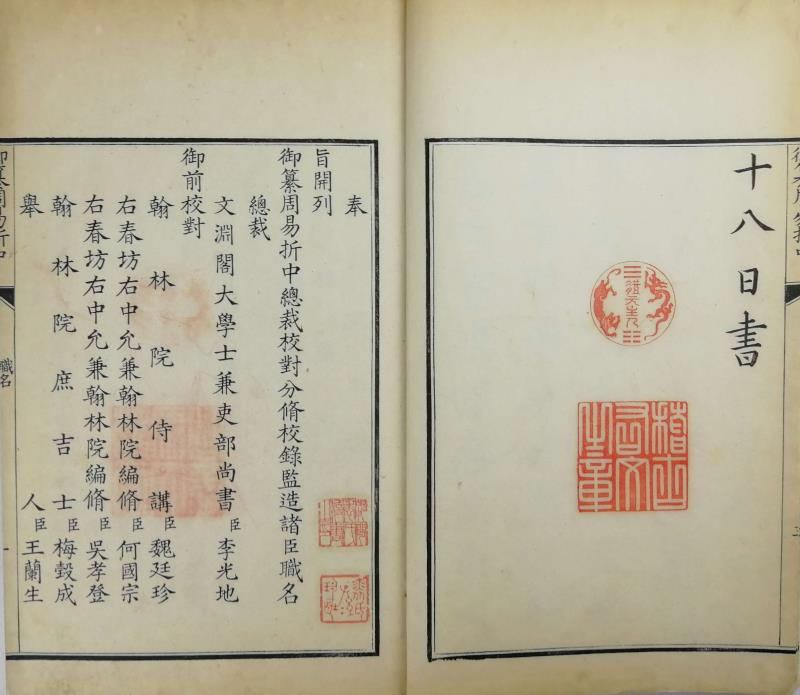 十八日書
體元主人
稽古右文之章
奉
旨開列
御纂周易折中總裁校對分脩校錄監造諸臣職名
總裁
文淵閣大學士兼吏部尚書臣李光地
御前校對
翰林院侍講臣魏廷珍
右春坊右中允兼翰林院編脩臣何國宗
右春坊右中允兼翰林院編脩臣吳孝登
翰林院庶吉士臣梅瑴成
舉人臣王蘭生
御纂周易折中
職名
一